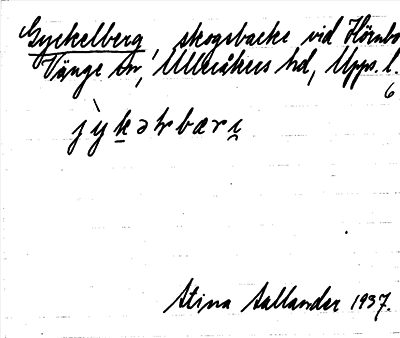 Gyckelberg, skogsbacke vid Hörnbo
Vänge sn, Ulleråkers hd, Upps. l.
6
jỳkəlrbærɩ
Stina Sallander 1937.